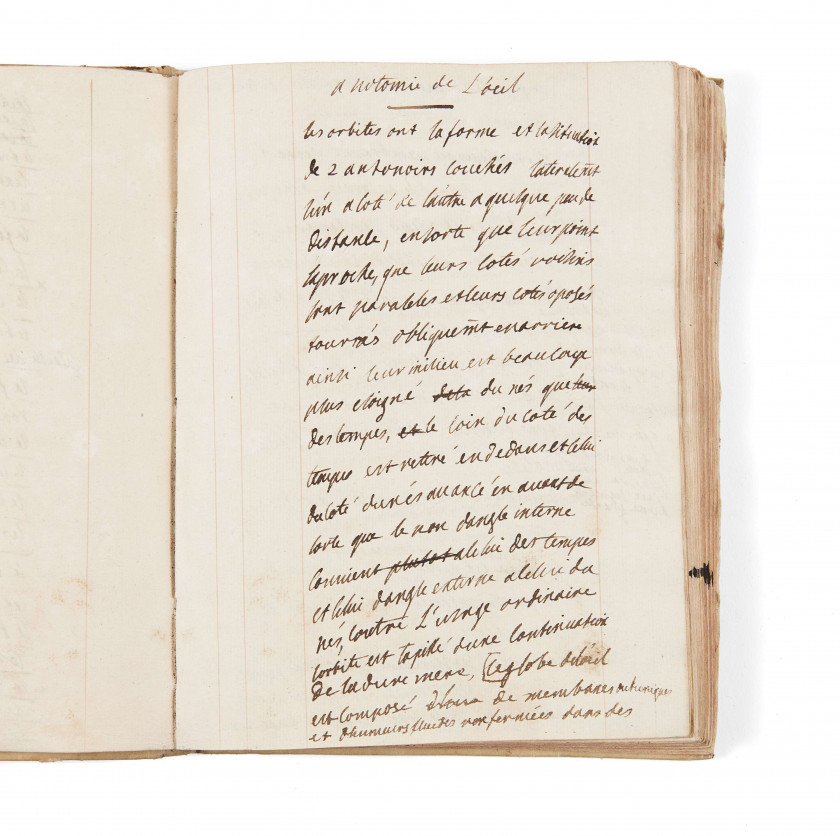 anotomie de L'oeil
les orbites ont la forme et la situation
de 2 antonoirs couchés lateralem̄t
l'un a coté de l'autre a quelque peu de
distance, en sorte que leur point
saproche, que leurs cotés voisins
sont paraleles et leurs cotés oposés
tournés obliquem̄t en arriere
ainsi leur milieu est beaucoup
plus eloigné dela du nés que leur
des tempes, et le coin du coté des
tempes est retiré en dedans et celui
du coté du nés avancé en avant de
sorte que le nom dangle interne
convient plutot a celui des tempes
et celui dangle externe a celui du
nés, contre L'usage ordinaire
lorbite est tapissé dune continuation
de la dure mere, le globe de l'oeil
est composé de membranes
et dhumeurs fluides renfermées dans des